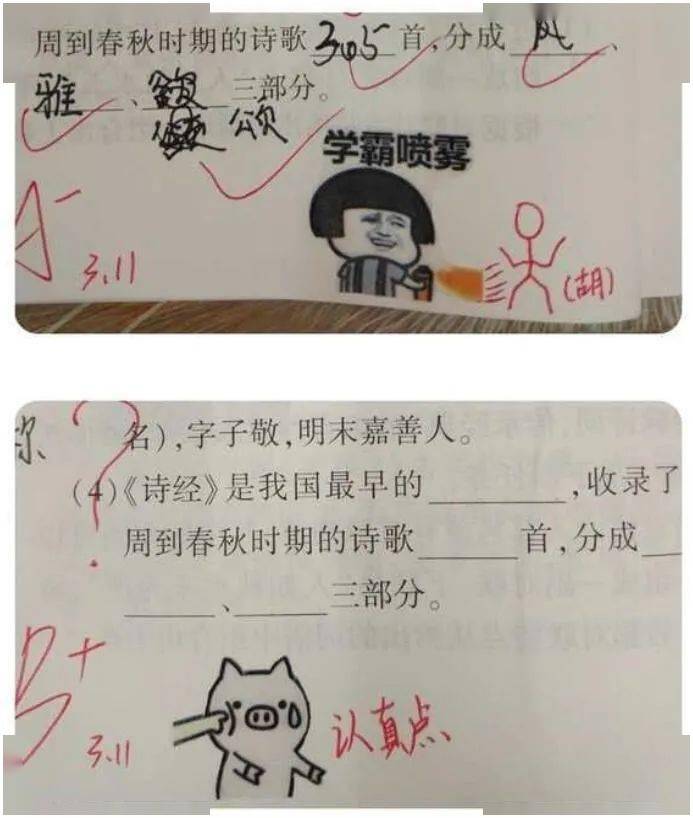 周到春秋时期的诗歌305首,分成风、
雅、三部分。
颂
学霸喷雾
A-
3.11
(胡)
名),字子敬,明末嘉善人。
?
(4)《诗经》是我国最早的______,收录了
周到春秋时期的诗歌______首,分成__
______、______三部分。
B+
3.11
认真点